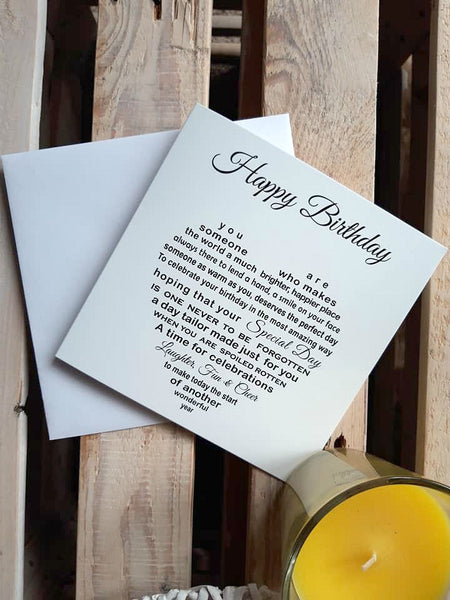 Happy Birthday
you are
someone who makes
the world a much brighter, happier place
always there to lend a hand, a smile on your face
someone as warm as you deserves the perfect day
To celebrate your birthday in the most amazing way
hoping that your Special Day
IS ONE NEVER TO BE FORGOTTEN
a day tailor made just for you
WHEN YOU ARE SPOILED ROTTEN
A time for celebrations
Laughter, Fun & Cheer
to make today the start
of another
wonderful
year